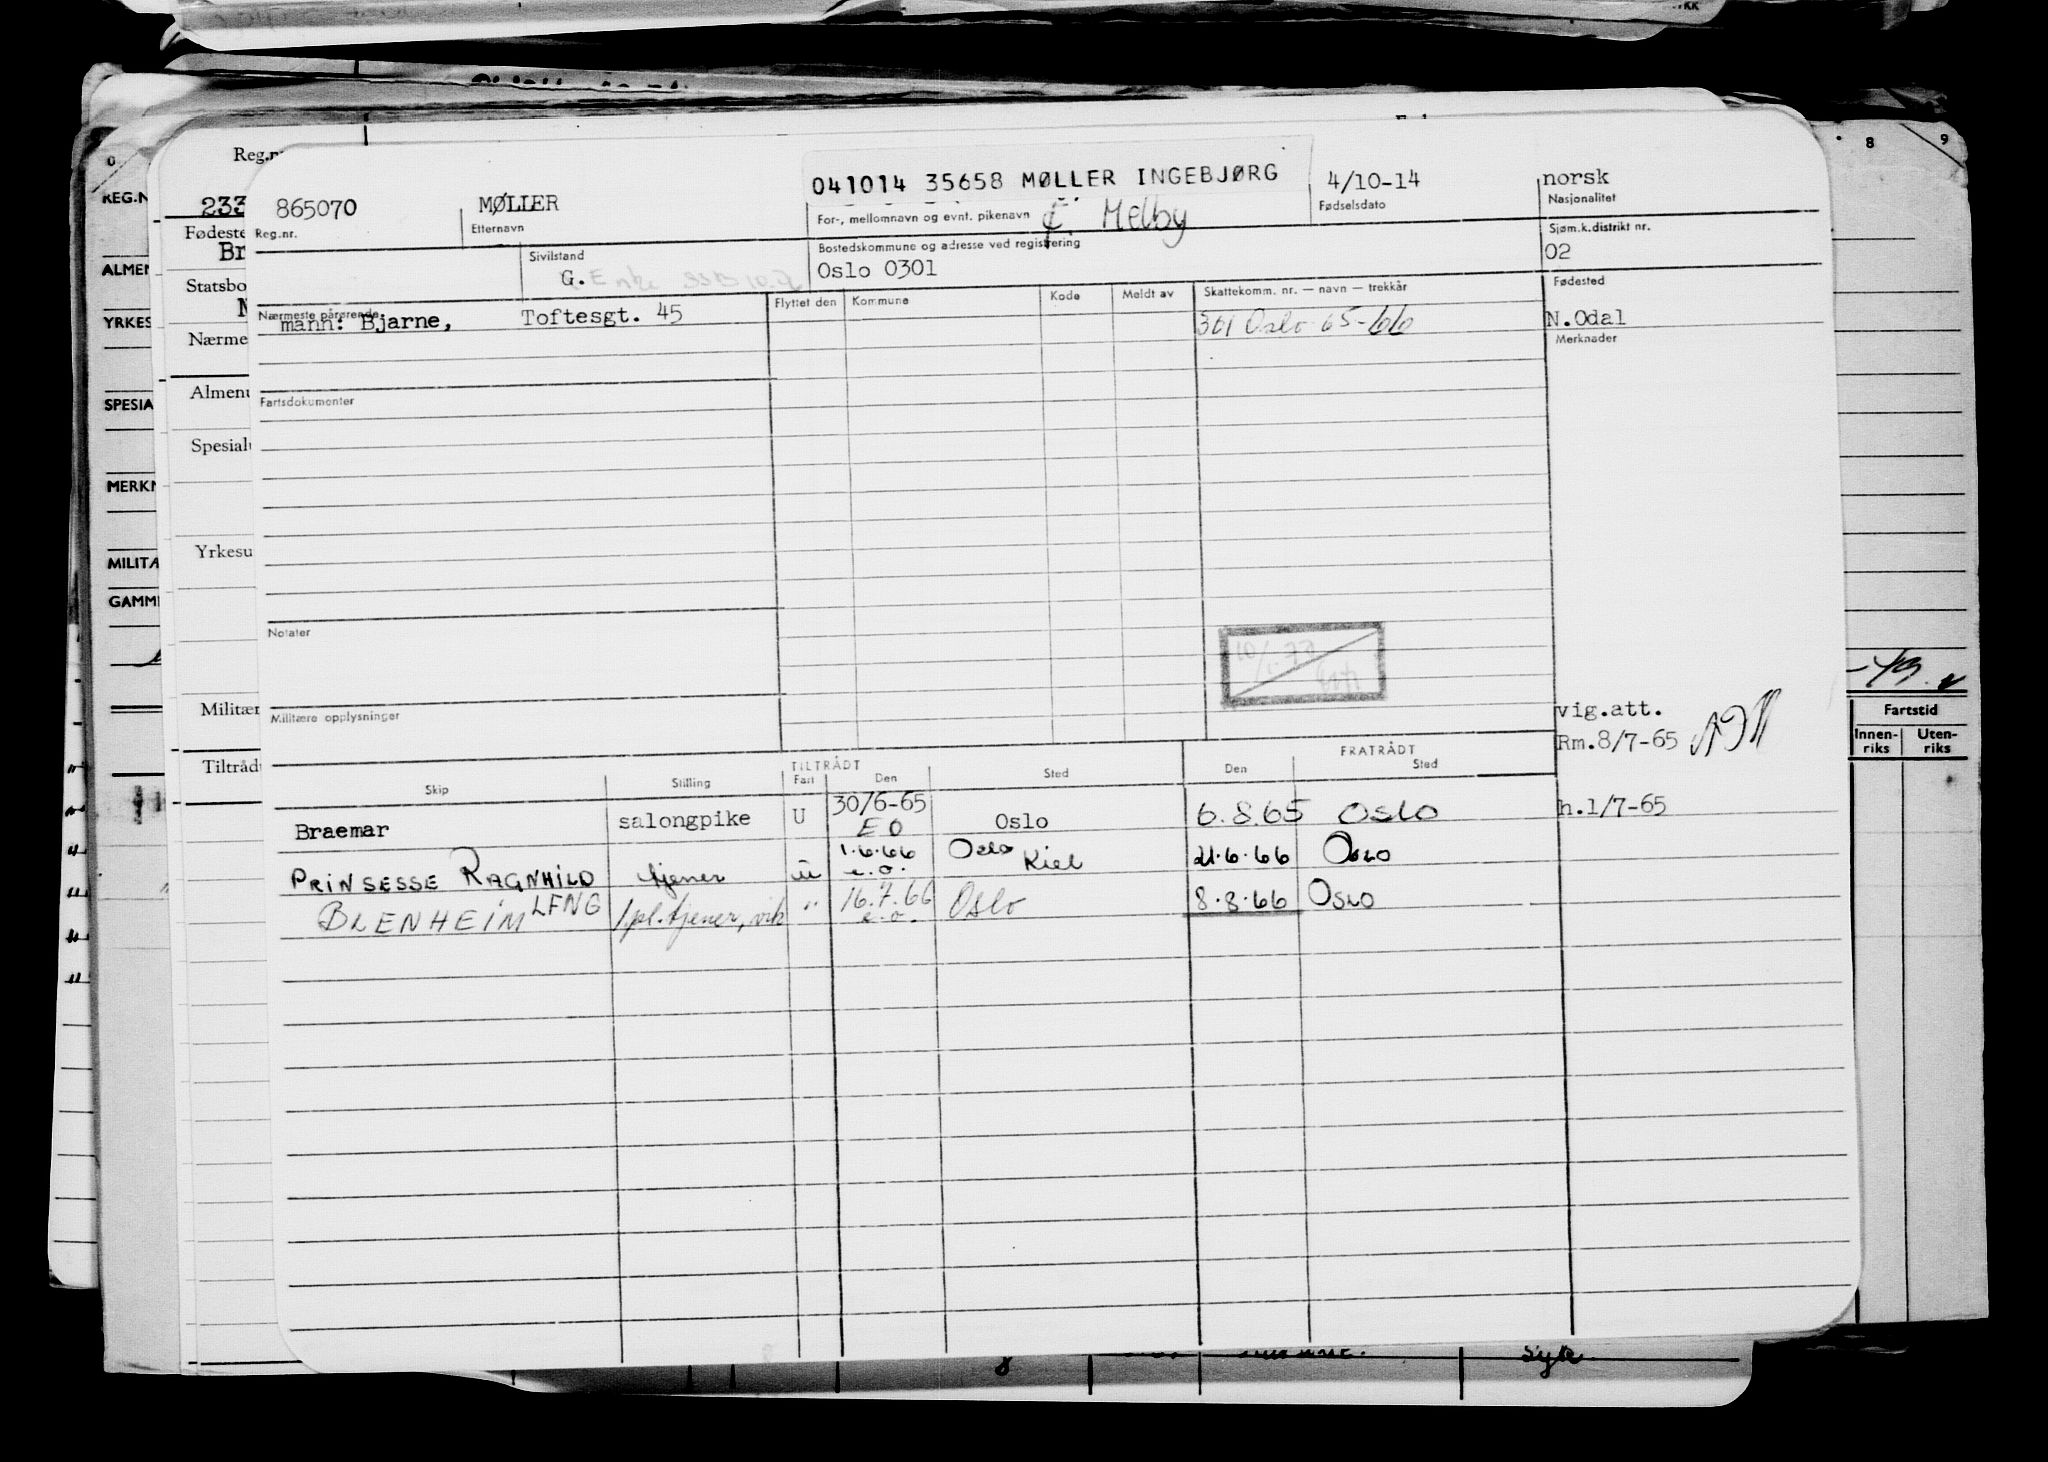 865070
Reg.nr.
MØLLER
Etternavn
041014 35658 MØLLER INGEBJØRG
For-, mellomnavn og evnt. pikenavn
f. Melby
4/10-14
Fødselsdato
norsk
Nasjonalitet
Sivilstand
G. Enke
Bostedskommune og adresse ved registrering
Oslo 0301
Sjøm.k.distrikt nr.
02
Nærmeste pårørende
mann: Bjarne, Toftesgt. 45
Flyttet den
Kommune
Kode
Meldt av
Skattekomm. nr. — navn — trekkår
301 Oslo 65-66
Fødested
N.Odal
Merknader
Fartsdokumenter
Notater
Militære opplysninger
vig.att.
Rm.8/7-65
TILTRÅDT
FRATRÅDT
Skip Stilling Fart Den Sted Den Sted
Braemar salongpike U 30/6-65 EO Oslo 6.8.65 Oslo h.1/7-65
PRINSESSE RAGNHILD tjener u 1.6.66 e.o. Oslo Kiel 21.6.66 Oslo
BLENHEIM LFNG 1pl.tjener, vik " 16.7.66 e.o. Oslo 8.8.66 Oslo
Reg.nr
233
Fødeste
Br
Statsbo
Nærme
Almenu
Spesialu
Yrkesu
Militær
Tiltråd
REG.N
ALMEN
YRKES
SPESIA
MERKN
MILITA
GAMM
8
9
Fartstid
Innen-
riks
Uten-
riks
Syk.